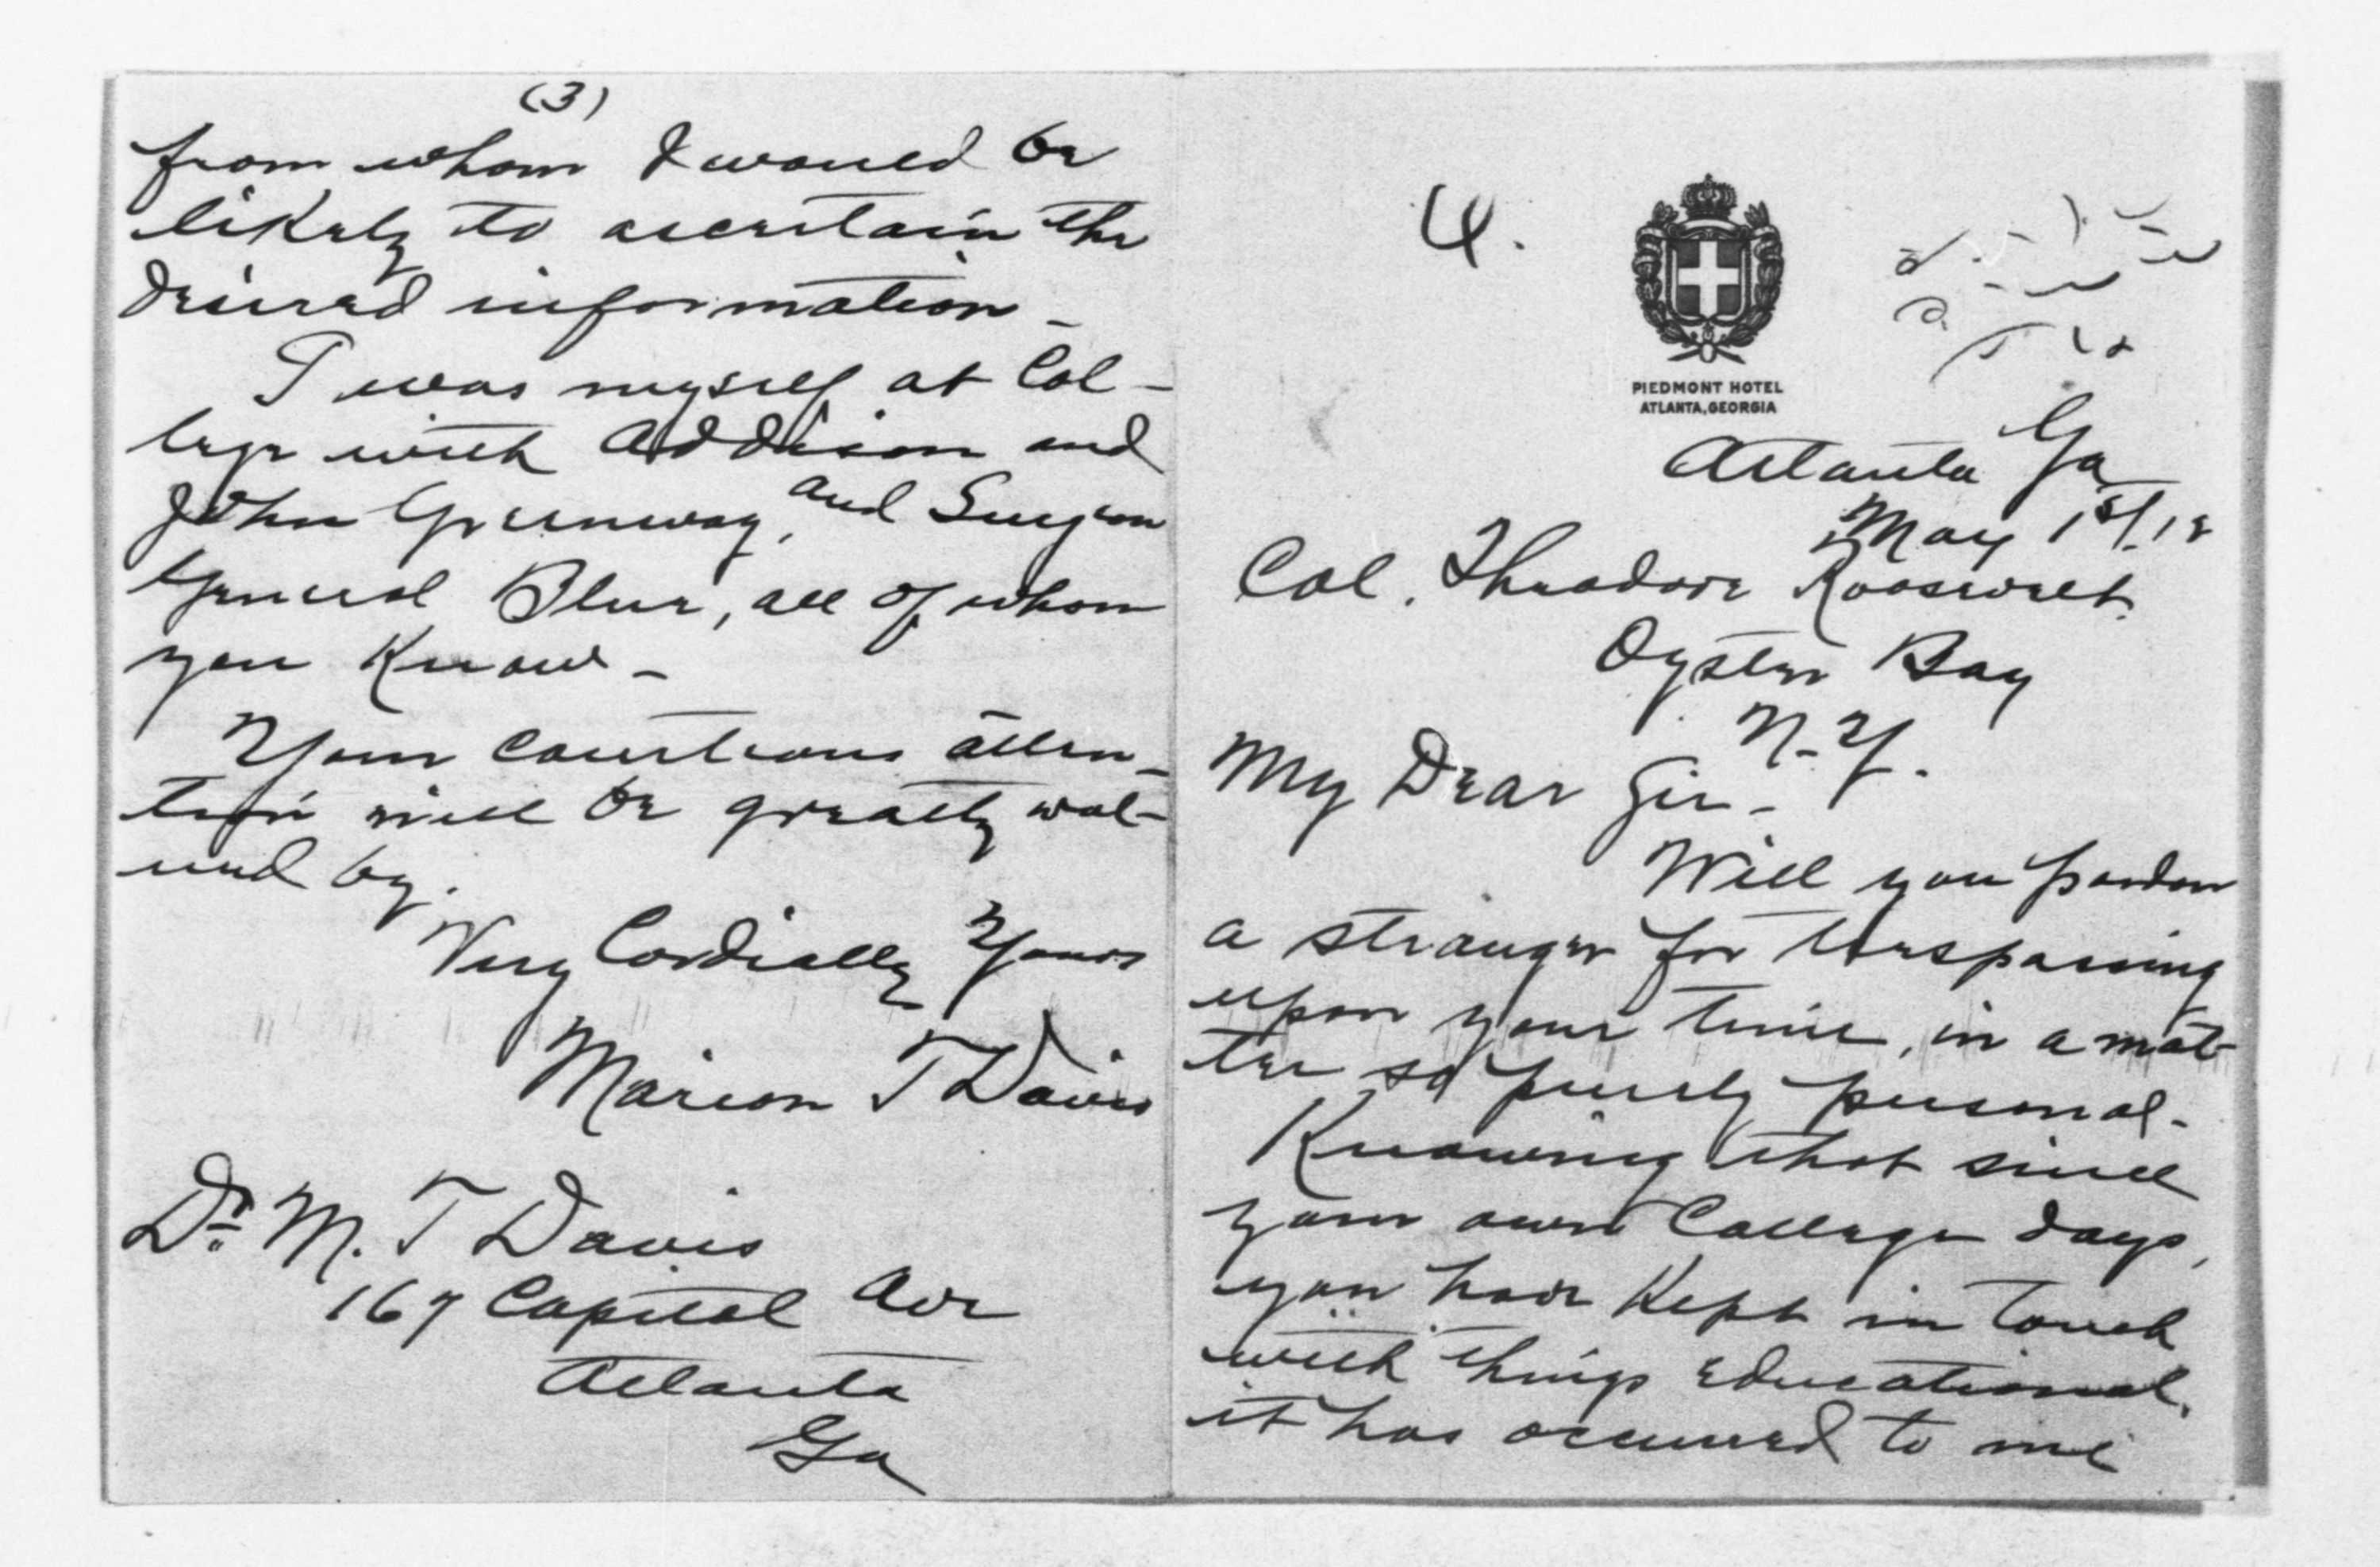 4.
PIEDMONT HOTEL
ATLANTA, GEORGIA
Atlanta Ga
May 1st. 18
Col. Theodore Roosevelt.
Oyster Bay
N.Y.
My Dear Sir -
Will you pardon
a stranger for trespassing
upon your time, in a mat-
ter so purely personal -
Knowing that since
your own College days,
you have kept in touch
with things educational,
it has occurred to me
(3)
from whom I would be
likely to ascertain the
desired information -
I was myself at Col-
lege with Addison and
John Greenway, and Surgeon
General Blue, all of whom
you know -
Your courteous atten-
tion will be greatly val-
ued by.
Very Cordially Yours
Marion T Davis
Dr. M. T Davis
167 Capital Ave
Atlanta
Ga